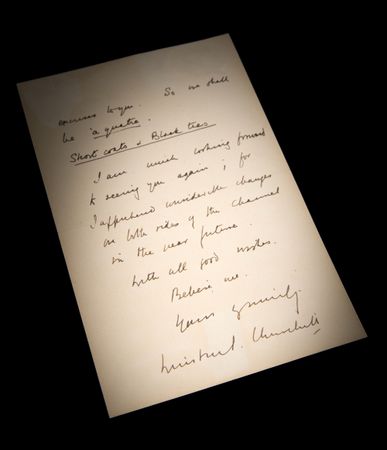 excuses to you. So we shall
be "a quatre".
Short coats & Black ties
I am much looking forward
to seeing you again; for
I apprehend considerable changes
on both sides of the Channel
in the near future.
With all good wishes.
Believe me.
Yours sincerely.
Winston S. Churchill